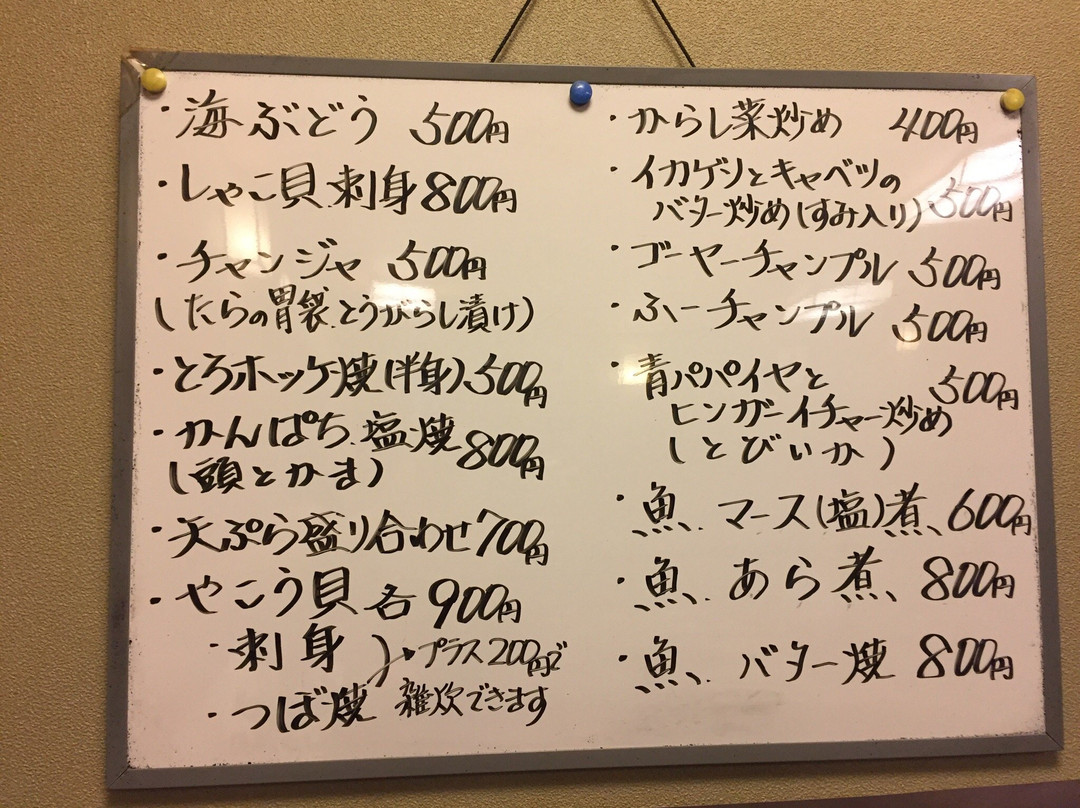 ・海ぶどう 500円
・しゃこ貝刺身 800円
・チャンジャ 500円
(たらの胃袋とうがらし漬け)
・とろホッケ焼(半身) 500円
・かんぱち塩焼 800円
(頭とかま)
・天ぷら盛り合わせ 700円
・やこう貝 各 900円
・刺身
プラス200円で
・つぼ焼
雑炊できます
・からし菜炒め 400円
・イカゲソとキャベツの
バター炒め(すみ入り) 500円
・ゴーヤーチャンプル 500円
・ふーチャンプル 500円
・青パパイヤと 500円
ヒンガーイチャー炒め
(とびいか)
・魚 マース(塩)煮 600円
・魚 あら煮 800円
・魚 バター焼 800円